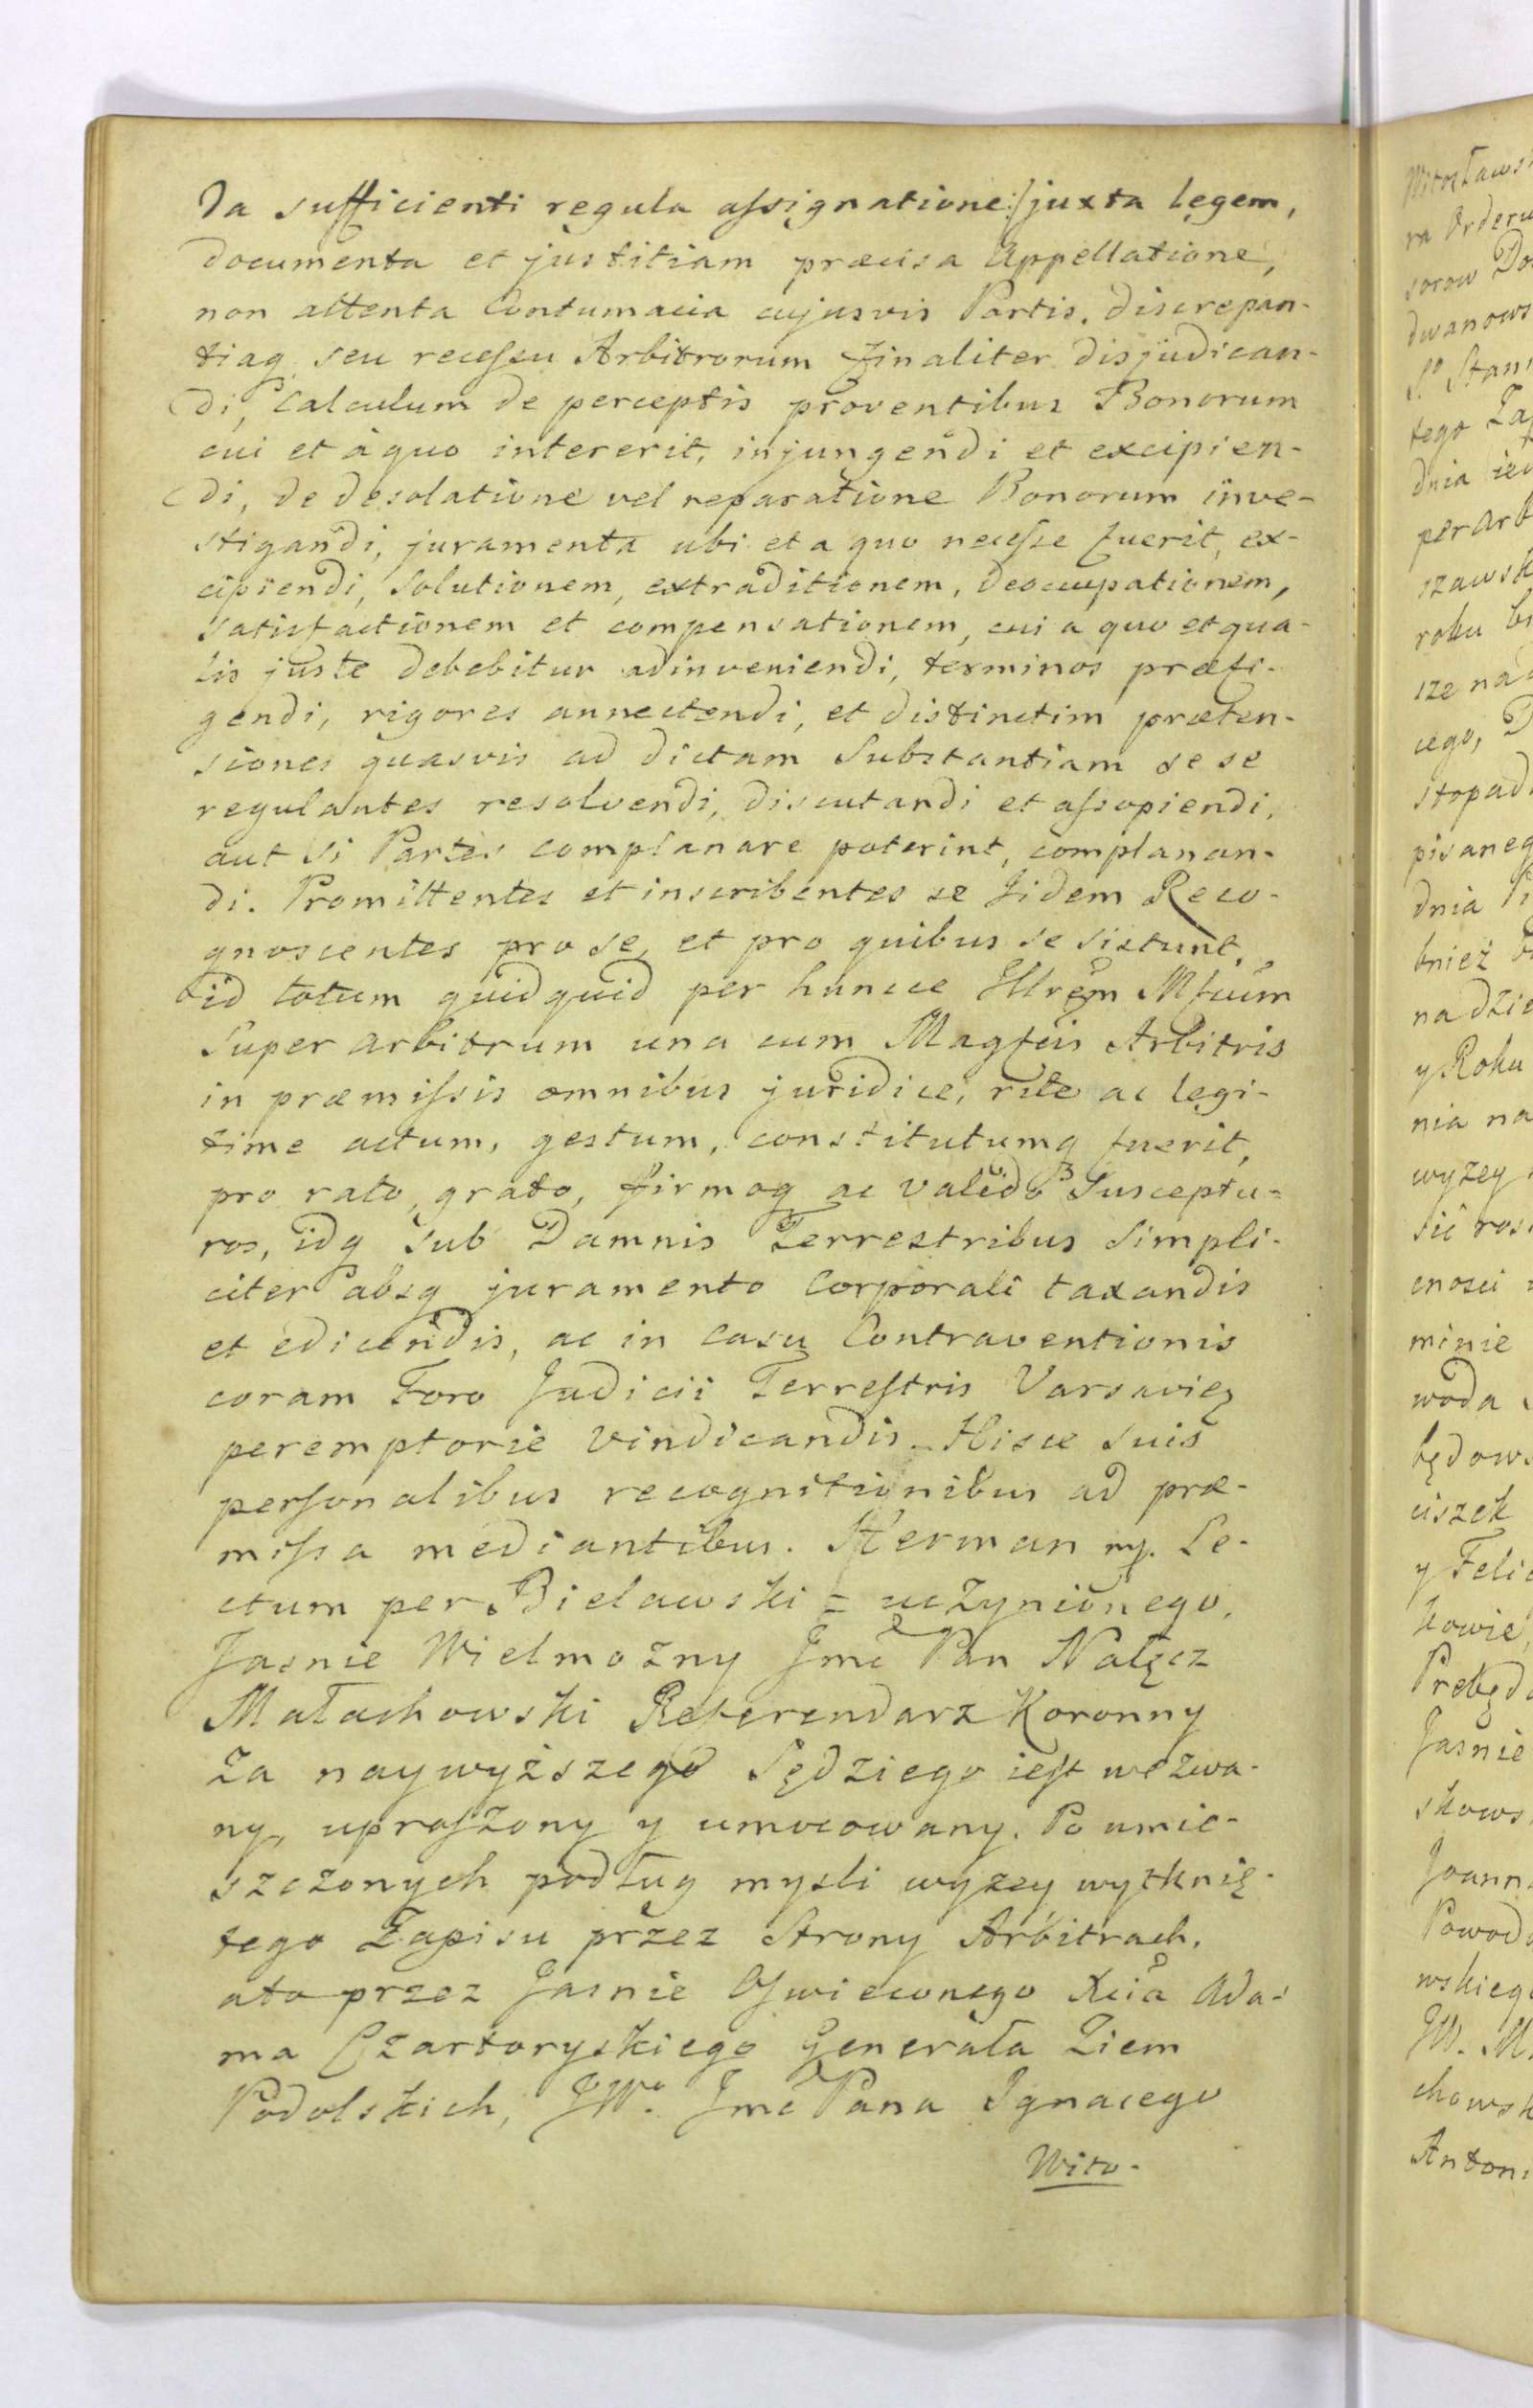 da sufficienti regula assignatione:/juxta legem,
documenta et justitiam præcisa Appellatione,
non attenta Contumacia cujusvis Partis, discrepan-
tiaq seu recessu Arbitrorum finaliter disjudican-
di, Calculum de perceptis proventibus Bonorum
cui et à quo intererit, injungendi et excipien-
di, de desolatione vel reparatione Bonorum inve-
stigandi, juramenta ubi et a quo necesse fuerit, ex-
cipiendi, Solutionem, extraditionem, deoccupationem,
satisfactionem et compensationem, cui a quo et qua-
lis juste debebitur adinveniendi, terminos præfi-
gendi, rigores annectendi, et distinctim præten-
siones quasvis ad dictam Substantiam se se
regulantes resolvendi, discutiandi et assopiendi,
aut si Partes complanare poterint, complanan-
di. Promittentes et inscribentes se Iidem Reco-
gnoscentes pro se, et pro quibus se sistunt,
id totum quidquid per hunce Illrem Mfcum
Super arbitrum una cum Magfcis Arbitris
in præmissis omnibus juridice, rite ac legi-
time actum, gestum, constitutumq fuerit,
pro rato, grato, firmoq ac valido Susceptu-
ros, idq sub Damnis Terrestribus Simpli-
citer absq juramento Corporali taxandis
et edicendis, ac in casu Contraventionis
coram Foro Judicii Terrestris Varsavię
peremptorie vindicandis. Hisce suis
personalibus recognitionibus ad præ-
missa mediantibus. Herman mp. Le-
ctum per Bielawski = uczynionego,
Jasnie Wielmozny Jmć Pan Nałęcz
Małachowski Referendarz Koronny
za naywyższego Sędziego iest wezwa-
ny, uproszony y umocowany. Po umie-
szczonych podług mysli wyzey wytknię-
tego Zapisu przez Strony Arbitrach,
ato przez Jasnie Oswieconego Xcia Ada-
ma Czartoryskiego Generała Ziem
Podolskich, JWo. Jmć Pana Ignacego
Wito-